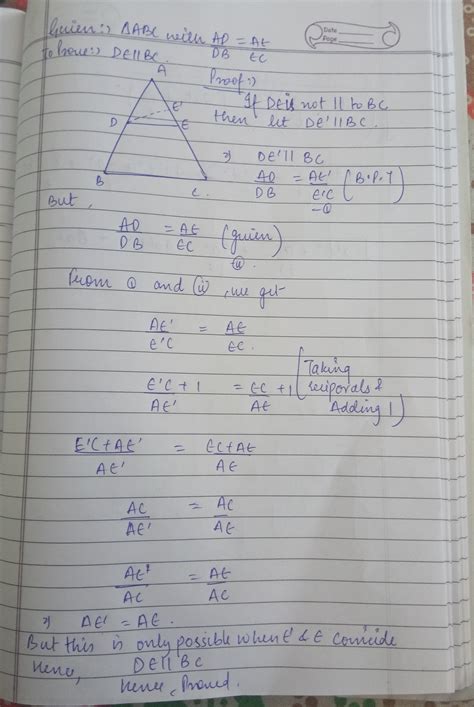 Given :→ ΔABC with AD/DB = AE/EC
Date
Page
To Prove :→ DE || BC.
Proof :→
If DE is not || to BC
then let DE' || BC.
⇒ DE' || BC
AD/DB = AE'/E'C (B.P.T)
—(i)
A
E'
D
E
B
C.
But,
AD/DB = AE/EC (given)
(ii).
From (i) and (ii), we get
AE'/E'C = AE/EC.
E'C/AE' + 1 = EC/AE + 1 (Taking
reciporals &
Adding 1)
E'C + AE'/AE' = EC + AE/AE
AC/AE' = AC/AE
AE'/AC = AE/AC
⇒ AE' = AE.
But this is only possible when E' & E coincide
Hence, DE || BC
Hence, Proved.